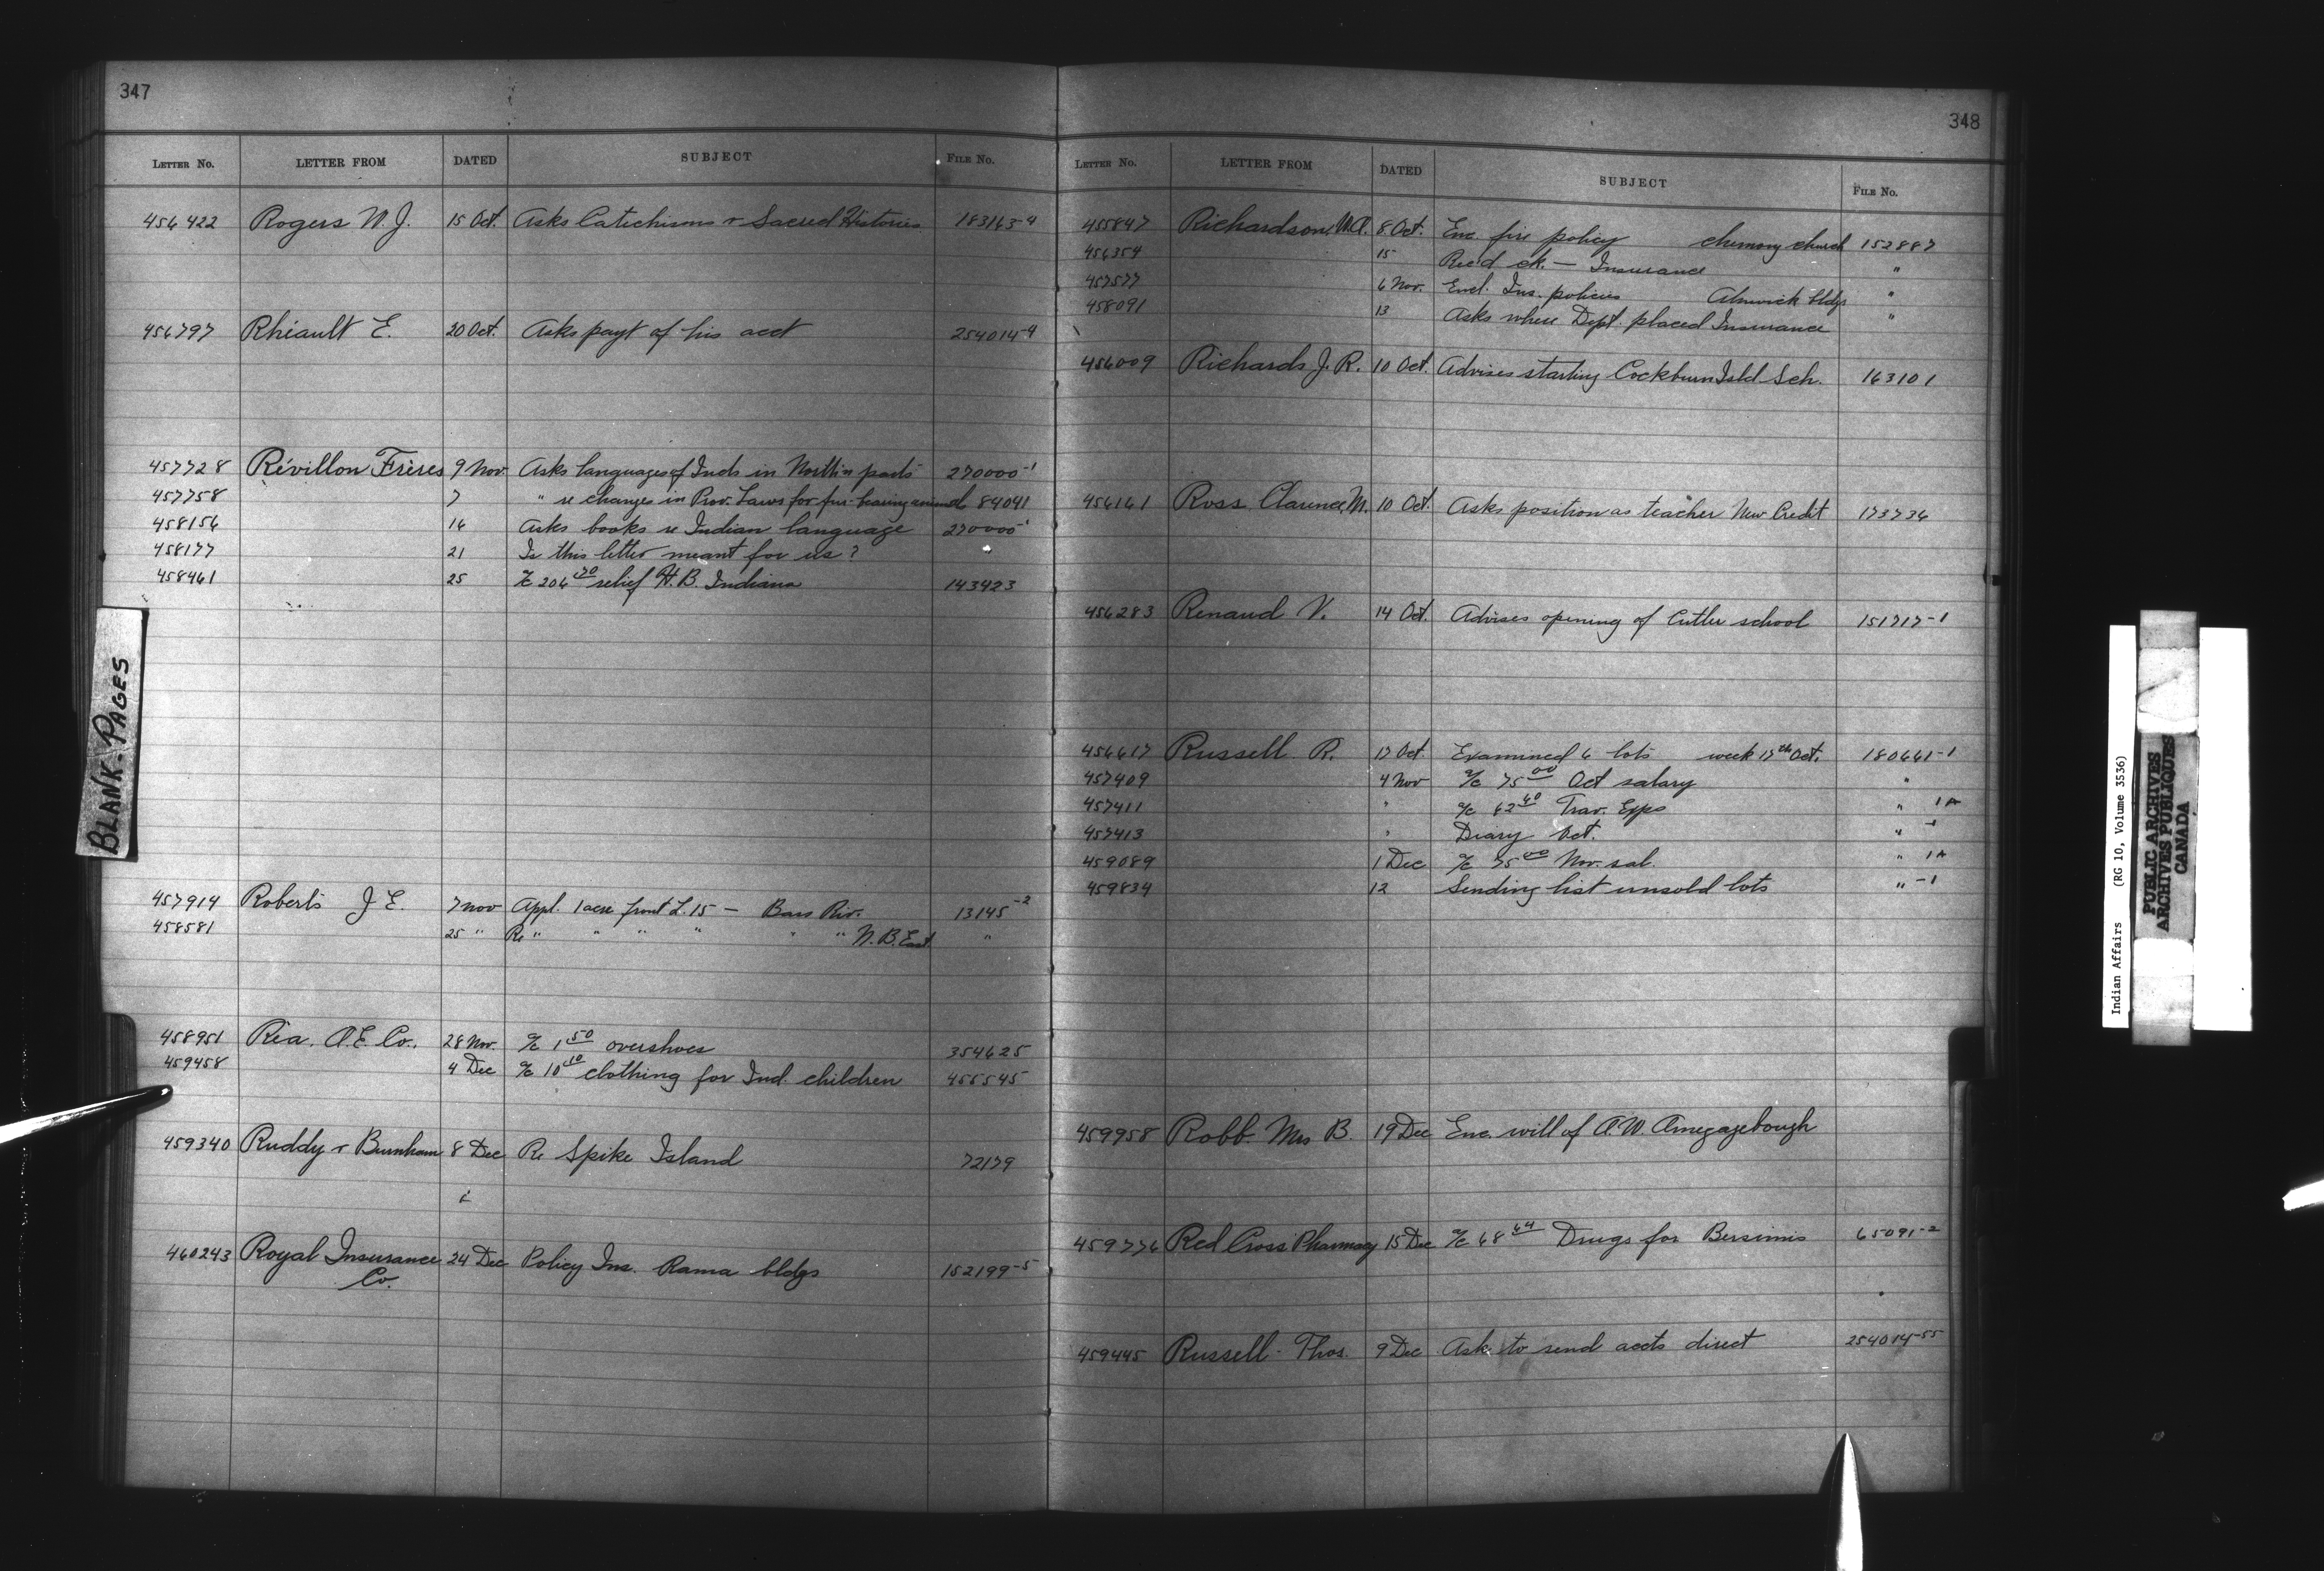 347
LETTER NO. LETTER FROM DATED SUBJECT FILE NO.
456422 Rogers W. J. 15 Oct. Asks Catechisms & Sacred Histories 183163-4
456797 Rhéault E. 20 Oct. Asks payt of his acct 254014-4
457728 Révillon Frères 9 Nov. Asks languages of Inds in North'n parts 270000-1
457758 7 " re changes in Prov. Laws for fur-bearing animals 84041
458156 16 Asks books re Indian language 270000-1
458177 21 Is this letter meant for us? "
458461 25 a/c 206 70 relief H. B. Indians 143423
457914 Roberts J E. 7 Nov Appl. 1 acre front L. 15 – Bars Riv. 13145-2
458581 25 " Re " " " " " " N. B. East "
458951 Rea. A. E. Co. 28 Nov. a/c 1 50 overshoes 354625
459458 4 Dec a/c 10 10 clothing for Ind. children 455545
459340 Ruddy & Burnham 8 Dec Re Spike Island 72179
460243 Royal Insurance 24 Dec Policy Ins. Rama bldgs 152199-5
Co.
348
LETTER NO. LETTER FROM DATED SUBJECT FILE NO.
455847 Richardson, W.A. 8 Oct. Enc. fire policy chemong church 152887
456354 15 Rec'd ck. – Insurance "
457577 6 Nov. Encl. Ins. policies Alnwick bldgs "
458091 13 Asks where Dept. placed Insurance "
456009 Richards J. R. 10 Oct. Advises starting Cockburn Isld Sch. 163101
456161 Ross Clarence M. 10 Oct. Asks position as teacher New Credit 173736
456283 Renaud V. 14 Oct. Advises opening of Cutler school 151717-1
456617 Russell R. 17 Oct Examined 6 lots week 17th Oct. 180661-1
457409 4 Nov a/c 75 00 Oct salary "
457411 " a/c 62 40 Trav. Exps " 1A
457413 " Diary Oct. " -1
459089 1 Dec a/c 75 00 Nov. sal. " 1A
459834 12 Sending list unsold lots " -1
459958 Robb Mrs B. 19 Dec Enc. will of A. W. Amegagebough
459776 Red Cross Pharmacy 15 Dec a/c 68 64 Drugs for Bersimis 65091-2
459445 Russell Thos. 9 Dec Ask to send accts direct 254014-55
BLANK PAGES
Indian Affairs (RG 10, Volume 3536)
PUBLIC ARCHIVES
ARCHIVES PUBLIQUES
CANADA